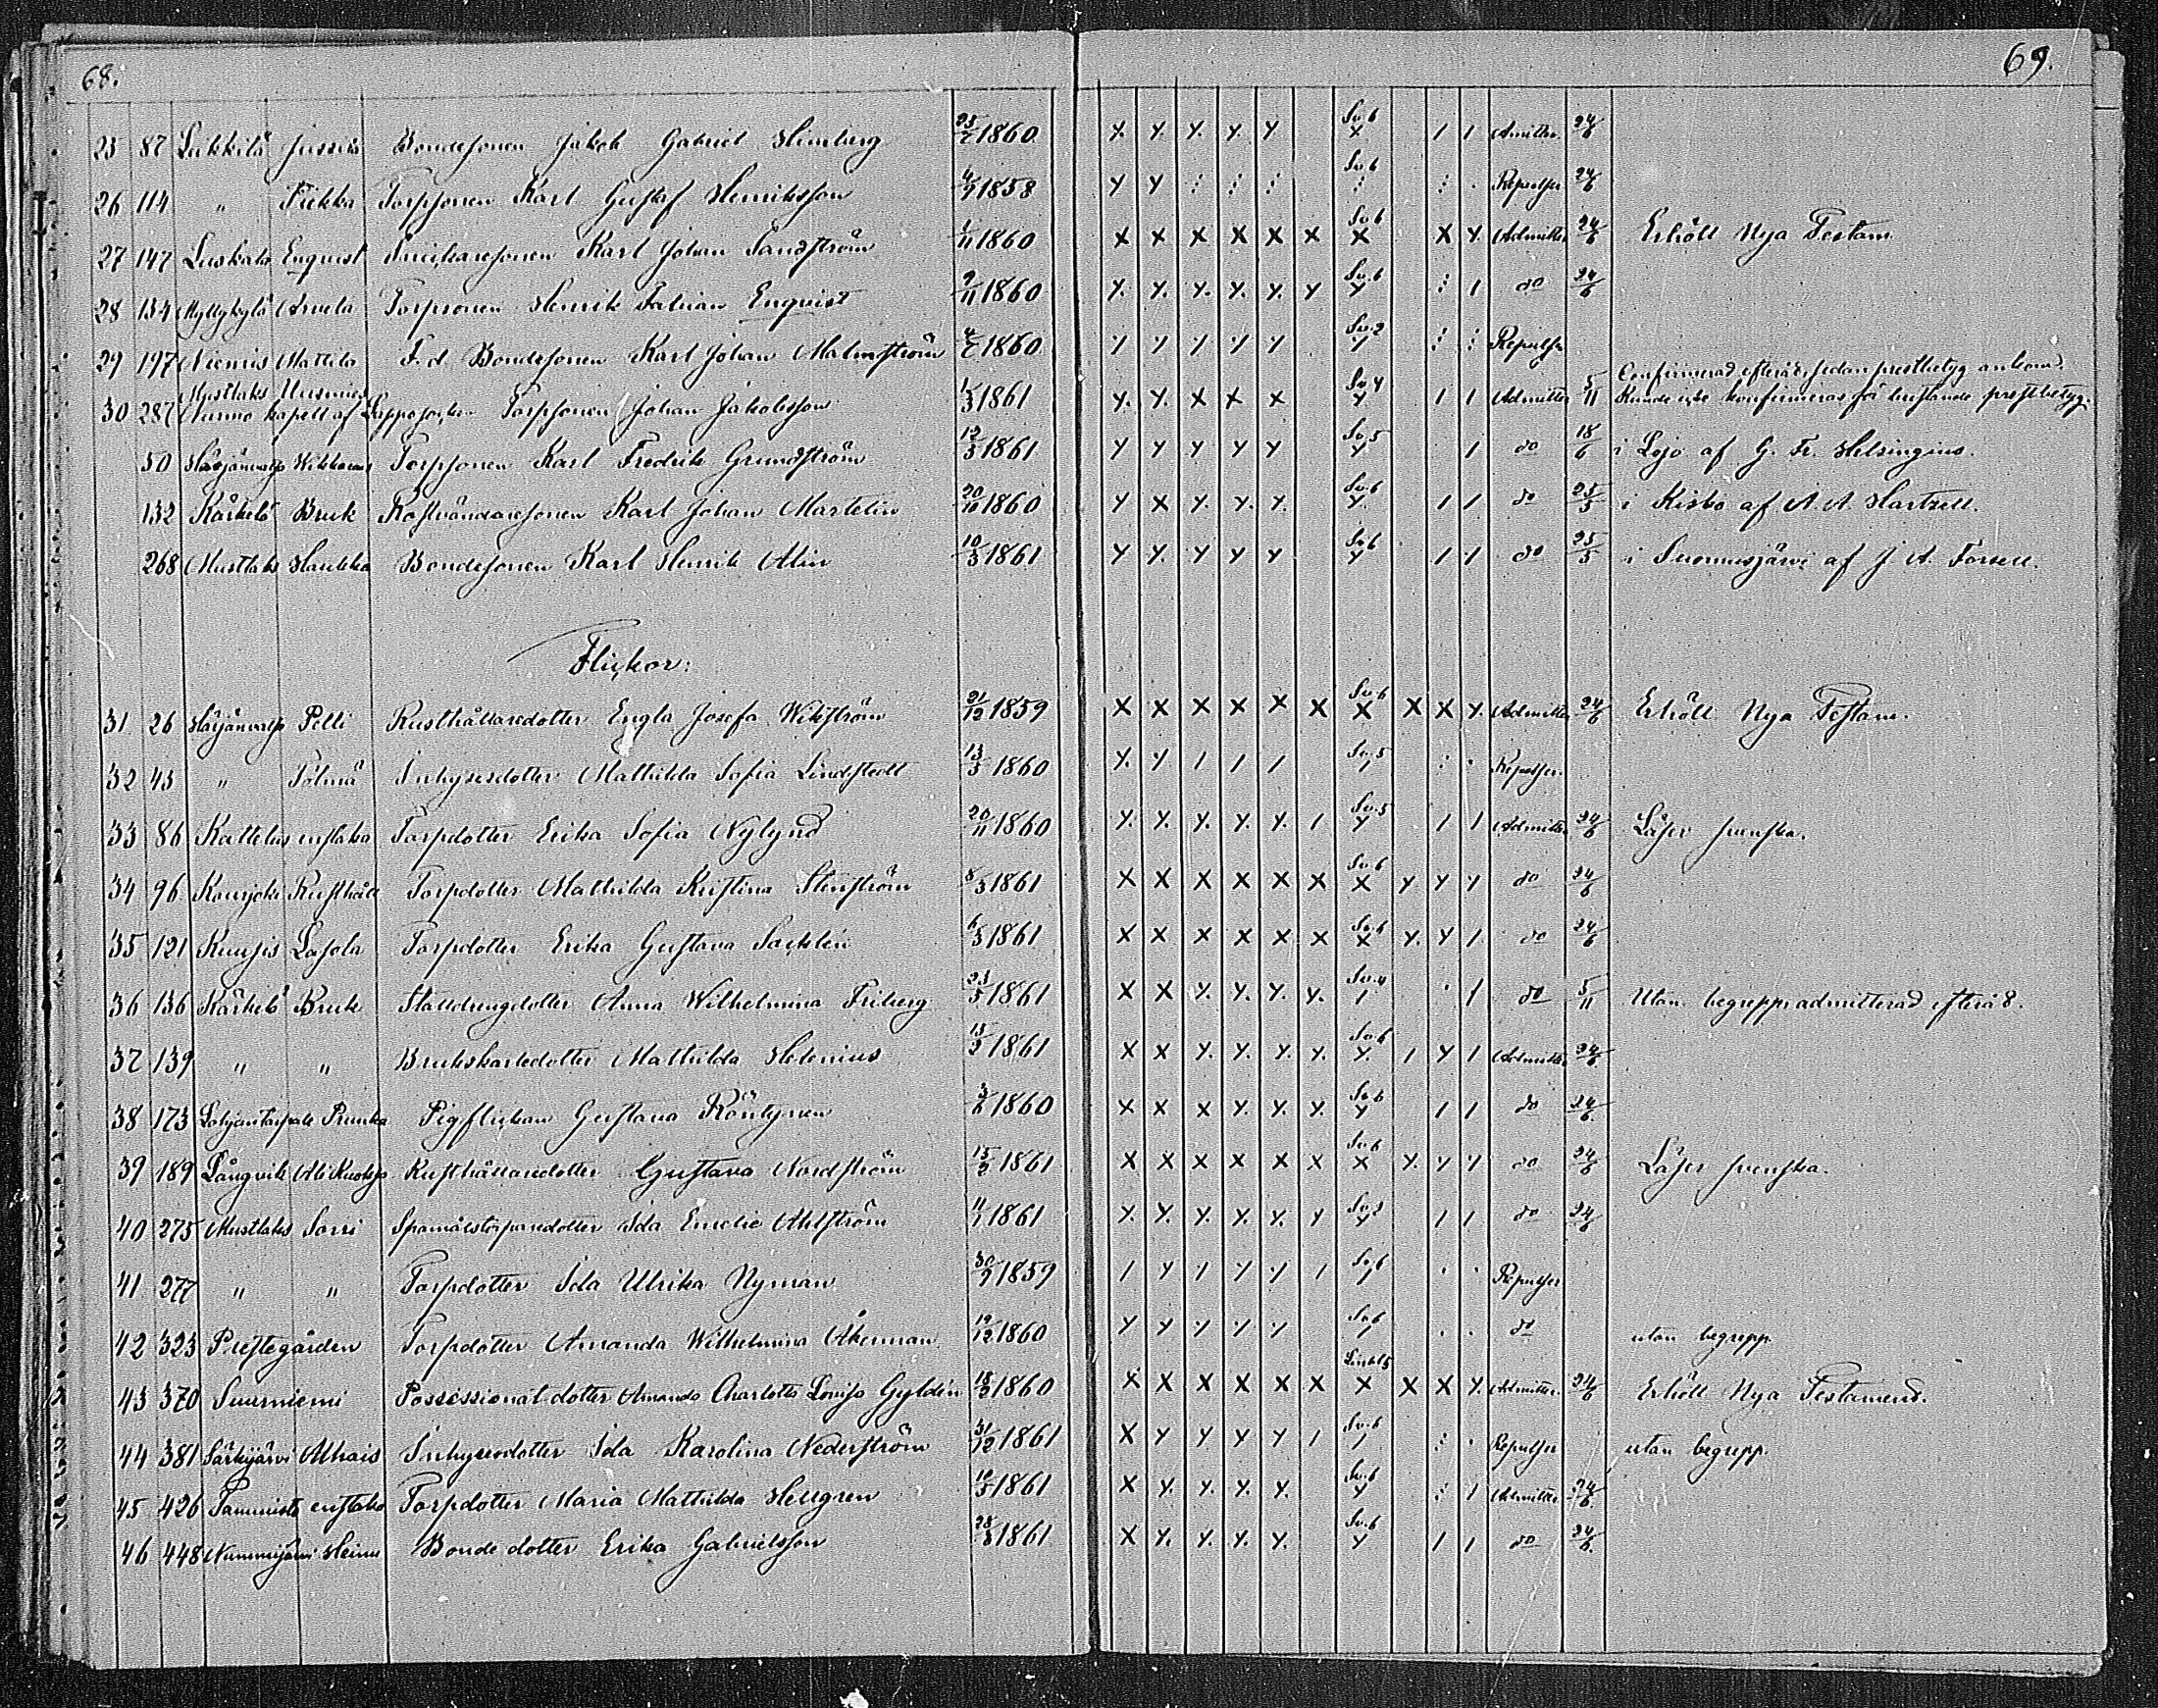 68.
69.
25 87 Leikkilä Jussila Bondesonen Jakob Gabriel Slimberg 25/7 1860 Y. Y. Y. Y. Y Sv. 6 X / / Amitter. 24/6
26 114 " Pickka Torpsonen Karl Gustaf Henriksson 4/9 1858 Y Y Sv. 6 Repulser 24/6
27 147 Luskala Enqvist Karl Johan Sandström 1/11 1860 X X X X X X Sv. 6 X X Y. Admitter 24/6 Erhöll Nya Testam.
28 134 Myllykylä Arvela Torpsonen Henrik Fabian Enqvist 9/11 1860 Y. Y. Y. Y. Y. Y Sv. 6 Y / do 24/6
29 197 Niemis Mattila F. d. Bondesonen Karl Johan Malmström 1860 Sv. 2 Repulser
Confirmerad efteråt, sedan prestbetyg ankom.
30 287 Nummo kapell af Torpsonen Johan Jakobsson 1/3 1861 Y. Y. X X X Sv. 4 Y / / Admitter 5/11 Kunde icke konfirmeras för bristande prestbetyg.
50 Härjänvatsa Torpsonen Karl Fredrik Grundström 12/3 1861 Y Y Y Y Y Sv. 5 Y / do 18/6 i Lojo af G. Fr. Helsingius.
132 Kärkelä Bruk Karl Johan Martelin 20/10 1860 Y X Y. Y. Y. Sv. 6 Y / / do 25/5 i Kisko af A. A. Hartzell.
268 Mustlaks Haukka Bondesonen Karl Henrik Alin 10/3 1861 Y Y Y Y Y Sv. 6 Y / / do 25/5 i Suomusjärvi af J. A. Forsell.
Flickor:
31 26 Härjänvatsa Pelli Rusthållaredotter Engla Josefa Wikström 21/12 1859 X X X X X X Sv. 6 X X X Y. Admitter 24/6 Erhöll Nya Testam.
32 43 " Tolmä Inhysesdotter Mathilda Sofia Lindstedt 13/3 1860 Y. Y / / / Sv. 5 / Repulser.
33 86 Kattelus enstaka Torpdotter Erika Sofia Nylund 20/11 1860 Y. Y. Y. Y. Y. / Sv. 5 Y / / Admitter 24/6 Läser svenska.
34 96 Koisjoki Rusthåll Torpdotter Mathilda Kristina Stenström 8/3 1861 X X X X X X Sv. 6 X Y Y Y do 24/6
35 121 Kuusjis Lasola Torpdotter Erika Gustava Sacklén 6/3 1861 X X X X X X Sv. 6 X Y. Y / do 24/6
36 136 Kärkelä Bruk Stalldrengdotter Anna Wilhelmina Friberg 23/5 1861 X X Y. Y. Y. Y. Sv. 4 / / do 5/11 Utan begrepp admitterad efteråt.
37 139 " " Brukskarledotter Mathilda Helenius 13/2 1861 X X Y. Y. Y. Y. Sv. 6 Y. / Y / Admitter 24/6
38 173 Lohjantaipale Prunka Pigflickan Gustava Röntynen 3/6 1860 X X X Y. Y. Y. Sv. 6 Y / / do 24/6
39 189 Långvik Ali Kuoksa Rusthållaredotter Gustava Nordström 15/2 1861 X X X X X X Sv. 6 X Y. Y Y do 24/6 Läser svenska.
40 275 Mustlaks Sorri Spannmålstorparedotter Ida Emelie Ahlström 11/1 1861 Y. Y. Y. Y. Y. Y Y / / do 24/6
41 277 " " Torpdotter Ida Ulrika Nyman 30/9 1859 / Y / Y Y / Sv. 6 / Repulser
42 323 Prestegården Torpdotter Amanda Wilhelmina Åkerman 19/12 1860 Y Y Y Y Y Sv. 6 / do utan begrepp.
43 370 Suurniemi Possessionatdotter Amanda Charlotta Lovisa Gyldén 18/3 1860 X X X X X X X X X Y. Admitter. 24/6 Erhöll Nya Testament.
44 381 Särkijärvi Alhais Inhysesdotter Ida Karolina Nederström 31/12 1861 X Y Y Y Y / Sv. 6 / Repulser utan begrepp.
45 426 Tammisto enstaka Torpdotter Maria Mathilda Hellgren 1861 X Y. Y. Y. Y. Sv. 6 Y / Admitter 24/6
46 448 Nummijärvi Heimo Bonde dotter Erika Gabrielsson 28/3 1861 X Y. Y. Y. Y. Sv. 6 Y / / do 24/6.